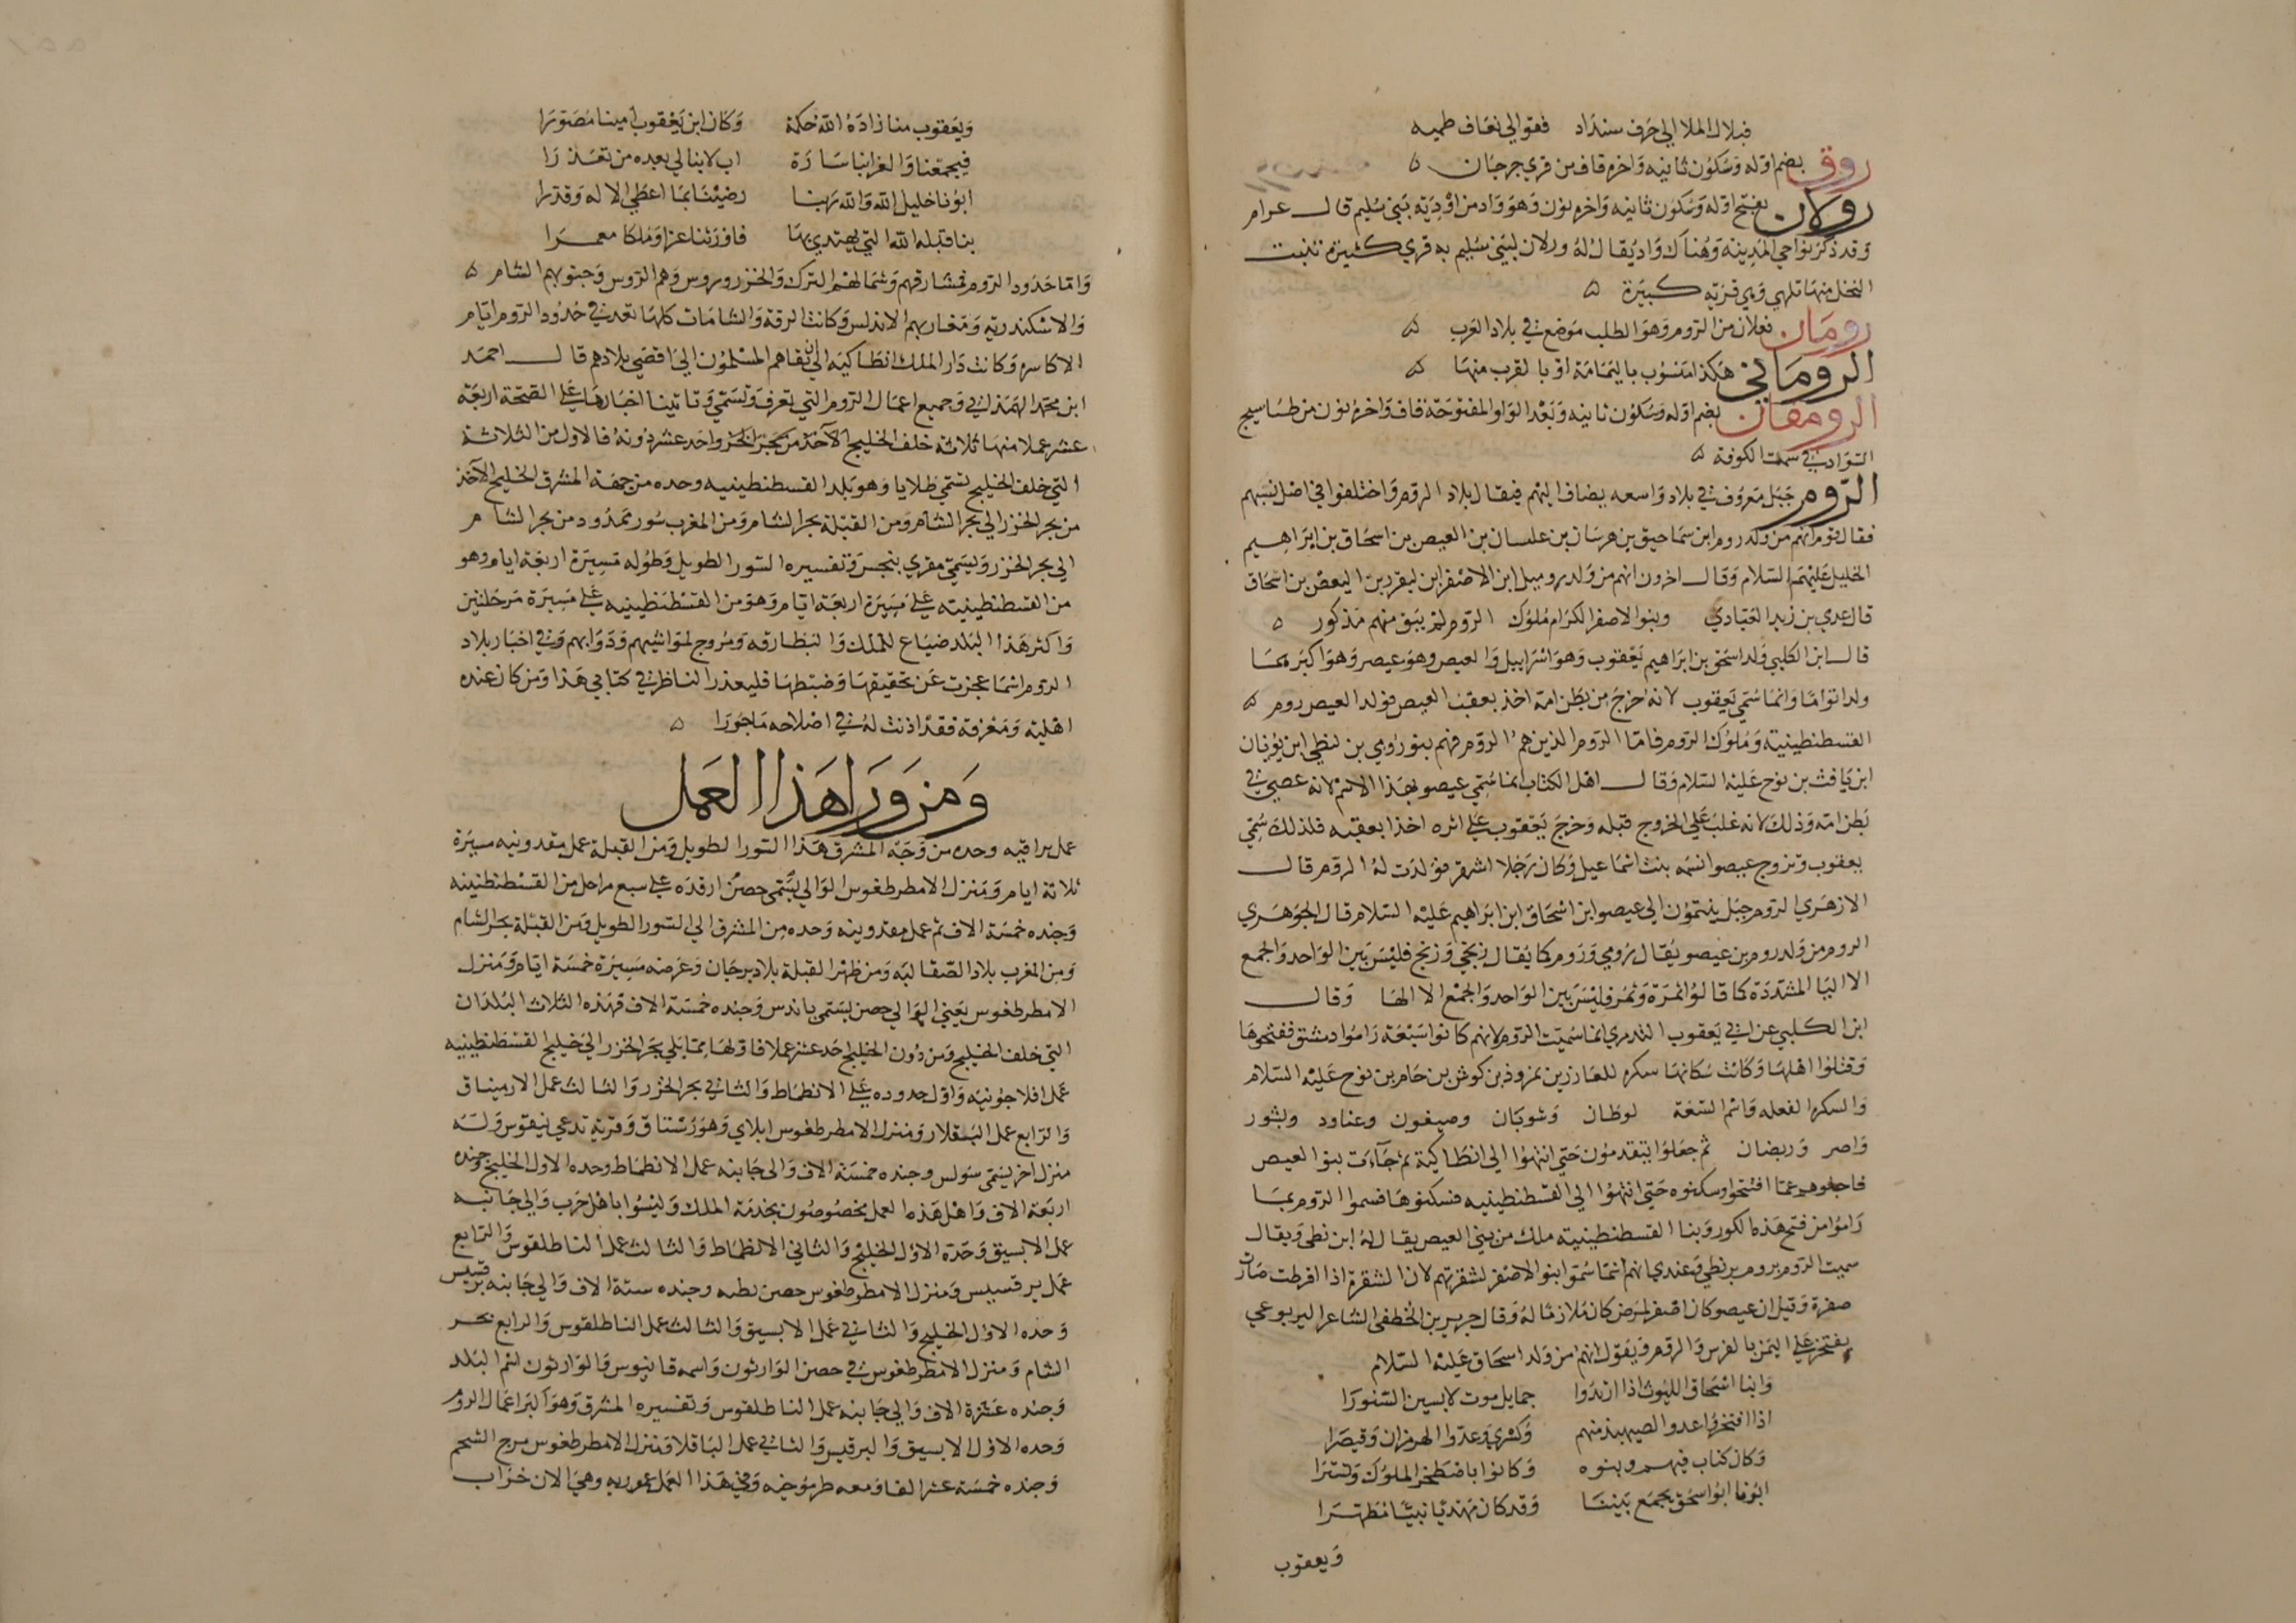 فبلاك الملا الي حرف سنداد   فقوالي نعاف طميه
روق بضم اوله وسكون ثانيه واخره قاف من قري جرجان ه
رولان بفتح اوله وسكون ثانيه واخره نون وهو واد من اودية بني سليم قال عرام
وقد ذكر نواحي المدينة وهناك واد يقال له ورلان لبني سليم به قري كثيرة تنبت
النخل منها قلهي وهي قرية كبيرة ه
رومان فعلان من الروم وهو الطلب موضع في بلاد العرب ه
الروماني هكذا منسوب باليمامة او بالقرب منها ه
الرومقان بضم اوله وسكون ثانيه وبعد الواو المفتوحة قاف واخره نون من طساسيج
السواد في سمت الكوفة ه
الروم جبل معروف في بلاد واسعه يضاف اليهم فيقال بلاد الروم واختلفوا في اصل نسبهم
فقال قوم انهم من ولد روم ابن سماحيق بن هرسان بن علسان بن العيص بن اسحاق بن ابراهيم
الخليل عليهم السلام وقال اخرون انهم من ولد روميل ابن الاصفر ابن ليفزر بن اليعص بن اسحاق
قال عدي بن زيد العبادي   وبنوا الاصفر الكرام ملوك   الروم لم يبق منهم مذكور ه
قال ابن الكلبي ولد اسحق بن ابراهيم يعقوب وهو اسرابيل والعيص وهو عيصر وهو اكبرهما
ولد اتوامّا وانما سمي يعقوب لانه اخرج من بطن امه اخذ بعقب العيص فولد العيص روم ه
القسطنطينية وملوك الروم فاما الروم الذين هم الروم فهم بنو رومي بن لنطي ابن يونان
ابن يافث بن نوح عليه السلام وقال اهل الكتاب انما سمي عيصو بهذا الاسم لانه عصي في
بطن امه وذلك لانه غلب علي الخروج قبله وخرج يعقوب علي اثره اخذا بعقبه فلذلك سمي
يعقوب وتزوج عيصو انسمه بنت اسماعيل وكان رجلا اشقر فولدت له الروم قال
الازهري الروم جبل ينتمون الي عيصو ابن اسحاق ابن ابراهيم عليه السلام قال الجوهري
الروم من ولد روم بن عيصو يقال رومي وروم كما يقال زنجي وزنج فليس بين الواحد والجمع
الا اليا المشددة كما قالوا تمرة وتمر فليس بين الواحد والجمع الا الها   وقال
ابن الكلبي عن ابي يعقوب التدمري انما سميت الروم لانهم كانوا سبعة راموا دمشق ففتحوها
وقتلوا اهلها وكانت سكانها سكره للعازر بن نمروذ بن كوش بن حام بن نوح عليه السلام
والسكره الفعله واسم السبعة   لوطان   وشوبان   وصيغون   وعناود   وبثور
واصر   وريضان   ثم جعلوا يتقدمون حتي انتهوا الي انطاكية ثم جآءت بنوا العيص
فاجلوهم عمّا افتتحوا وسكنوه حتي انتهوا الي القسطنطينيه فسكنوها فسموا الروم بما
راموا من فتح هذه الكور وبنا القسطنطينية ملك من بني العيص يقال له ابن نطي ويقال
سميت الروم بروم برنطي وعندي انهم انما سموا بنوا الاصفر لشقرتهم لان الشقرة اذا افرطت صارت
صفرة وقيل ان عيصو كان اصفر لمرض كان ملازما له وقال جرير بن الخطفى الشاعر اليربوعي
يفتخر علي اليمن بالفرس والروم ويقول انهم من ولد اسحاق عليه السلام
وابنا اسحاق الليوث اذا ارتدوا   حمايل موت لابسين السنورا
اذا افتخروا عدوا الصيهبذ منهم   وكسري وعدوا الهرمزان وقيصرا
وكان كتاب فيهم ونبوه   وكانوا باصطخر الملوك وتسترا
ابونا ابو اسحق يجمع بيننا   وقد كان مهديا نبيّا مطهرا
ويعقوب
ويعقوب منا زاده الله حكمة   وكان ابن يعقوب امينا مصورا
فيجمعنا والغر ابنا سارة   اب لا ينالي بعده من تعذرا
ابونا خليل الله والله ربنا   رضينا بما اعطي الاله وقدرا
بنا قبلة الله التي يهتدي بها   فاورثنا عزا وملكا معمرا
واما حدود الروم فمشارقهم وشمالهم الترك والخزر وروس وهم الروس وجنوبهم الشام ه
والاسكندرية ومغاربهم الاندلس وكانت الرقة والشامات كلها تعد في حدود الروم ايام
الاكاسره وكانت دار الملك انطاكيه الي ان نفاهم المسلمون الي اقصي بلادهم قال احمد
ابن محمد الهمذاني وجميع اعمال الروم التي تعرف وتسمي وتاتينا اخبارها علي الصحة اربعة
عشر عملا منها ثلاثة خلف الخليج الآخذ من بحر الخزر واحد عشر دونه فالاول من الثلاثة
التي خلف الخليج تسمي طلايا وهو بلد القسطنطينيه وحده من جهة المشرق الخليج الآخذ
من بحر الخزر الي بحر الشام ومن القبلة بحر الشام ومن المغرب سور ممدود من بحر الشام
الي بحر الخزر ويسمي مقري بنجس وتفسيره السور الطويل وطوله مسيرة اربعة ايام وهو
من القسطنطينيه علي مسيرة اربعة ايام وهو من القسطنطينيه علي مسيرة مرحلتين
واكثر هذا البلد ضياع للملك والبطارقه ومروج لمواشيهم ودوابهم وفي اخبار بلاد
الروم اسما عجزت عن تحقيقها وضبطها فليعذر الناظر في كتابي هذا ومن كان عنده
اهلية ومعرفة فقد اذنت له في اصلاحه ماجورا ه
ومن ورا هذا العمل
عمل براقيه وحده من وجه المشرق هذا السور الطويل ومن القبلة عمل مقدونيه مسيرة
ثلاثة ايام ومنزل الامطرطغوس الوالي يسمي حصن ارقده علي سبع مراحل من القسطنطينيه
وجنده خمسة الاف ثم عمل مقدونيه وحده من المشرق الي السور الطويل ومن القبلة بحر الشام
ومن المغرب بلاد الصقالبه ومن ظهر القبلة بلاد برجان وعرضه مسيرة خمسة ايام ومنزل
الامطرطغوس يعني الوالي حصن يسمي باندس وجنده خمسة الاف فهذه الثلاث البلدان
التي خلف الخليج ومن دون الخليج احد عشر عملا فاولها مما يلي بحر الخزر الي خليج القسطنطينيه
عمل افلاجونيه واول حدوده علي الانطماط والثاني بحر الخزر والثالث عمل الارميناق
والرابع عمل البقلار ومنزل الامطرطغوس ابلاي وهو رستاق وقرية تدعي نيقوس وله
منزل اخر يسمى سولس وجنده خمسة الاف والي جانبه عمل الانطماط وحده الاول الخليج وجنده
اربعة الاف واهل هذه العمل مخصوصون بخدمة الملك وليسوا باهل حرب والي جانبه
عمل الابسيق وحده الاول الخليج والثاني الانطماط والثالث عمل الناطلقوس والرابع
عمل برقسيس ومنزل الامطرطغوس حصن بطنه وجنده ستة الاف والي جانبه برقسيس
وحده الاول الخليج والثاني عمل الابسيق والثالث عمل الناطلقوس والرابع بحر
الشام ومنزل الامطرطغوس في حصن الوارثون واسمه قانيوس والوارثون اسم البلد
وجنده عشرة الاف والي جانبه عمل الناطلقوس وتفسيره المشرق وهو اكبر اعمال الروم
وحده الاول الابسيق والبرقيس والثاني عمل الباقلا ومنزل الامطرطغوس مرج الشحم
وجنده خمسة عشر الفا ومعه طرموخيه وفي هذا العمل عموريه وهي الان خراب